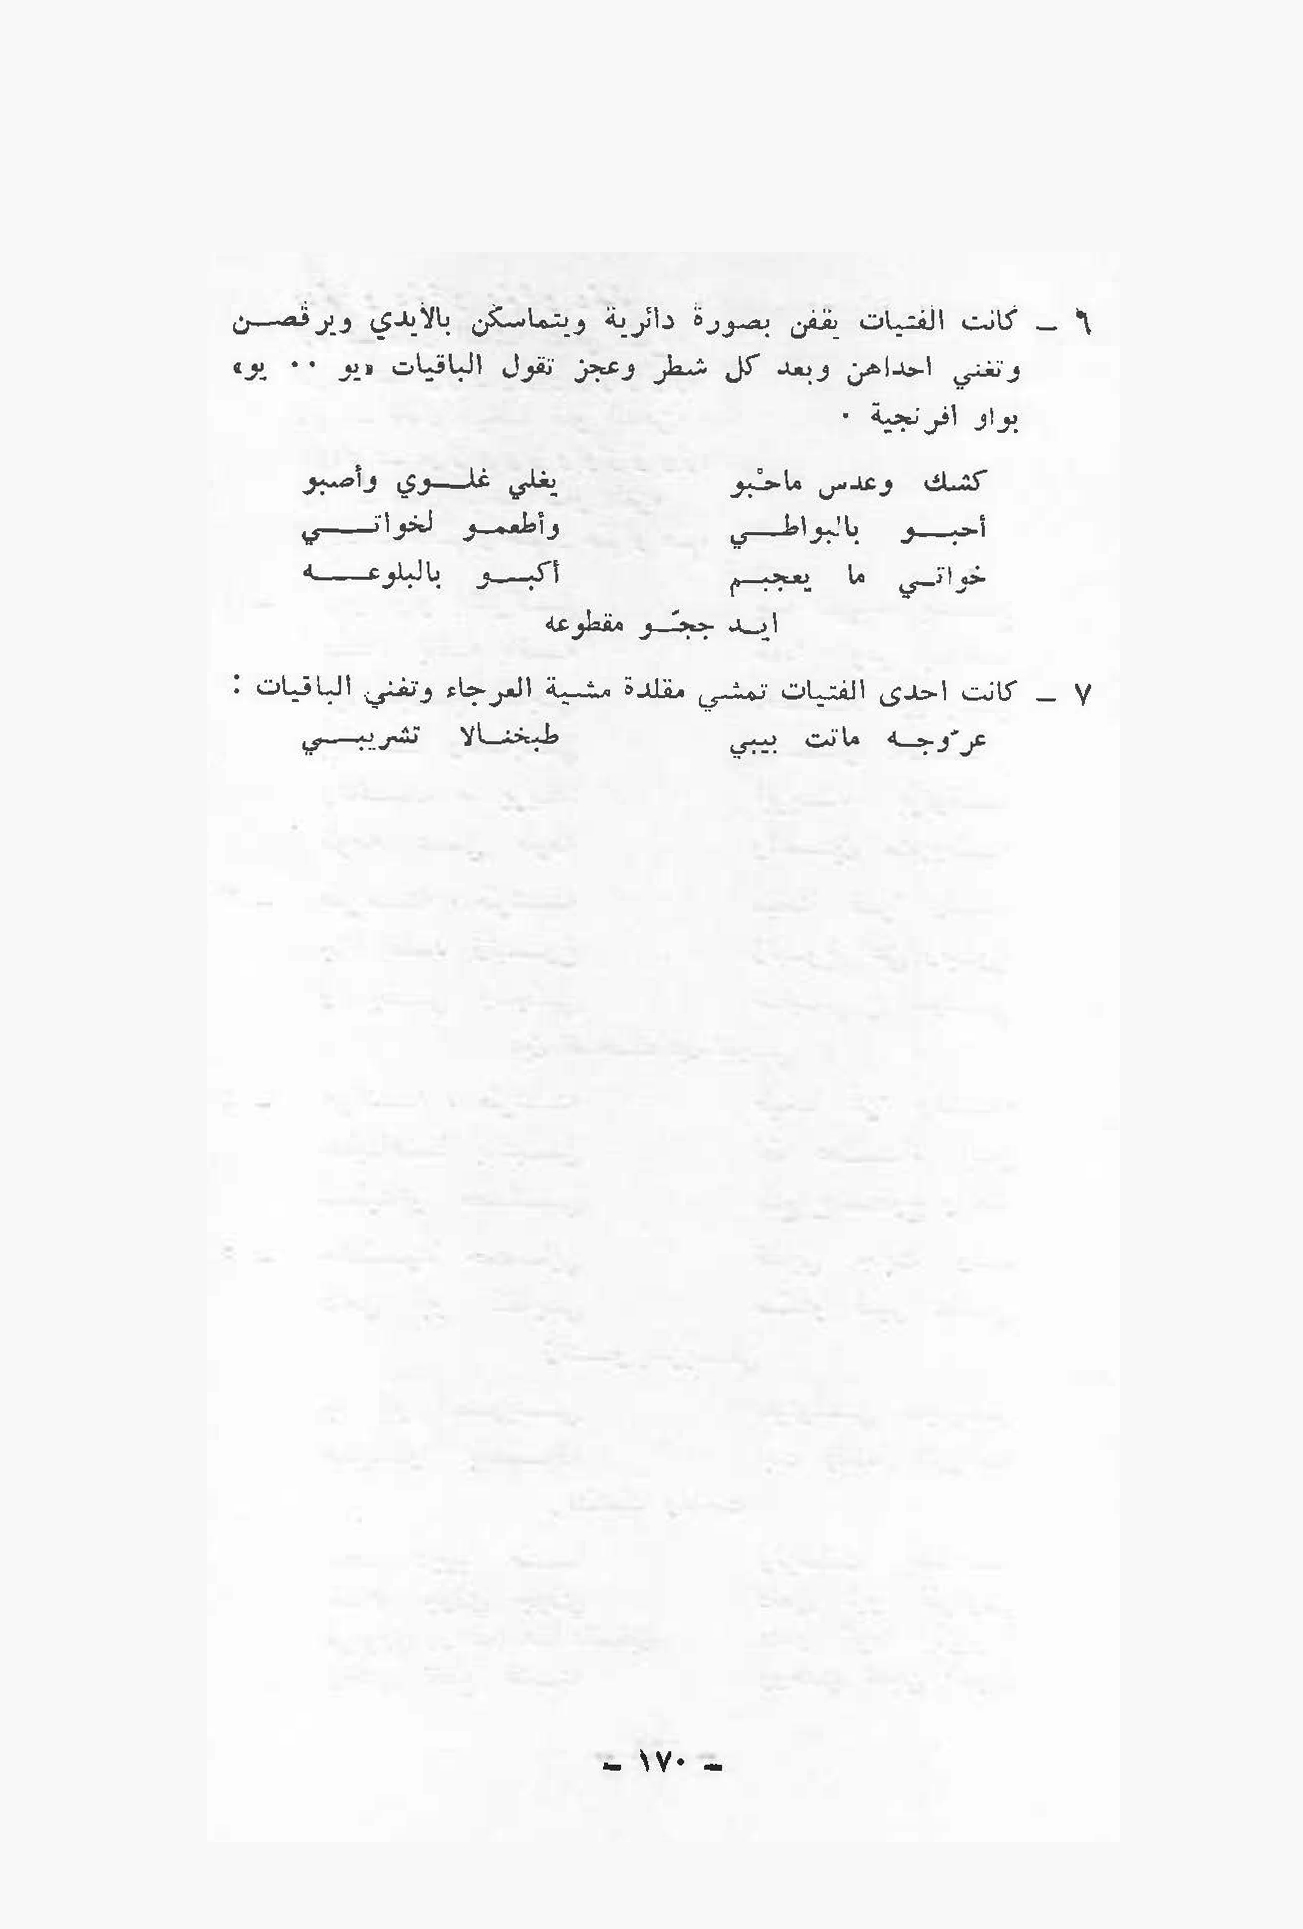 ٦ ـ كانت الفتيات يقفن بصورة دائرية ويتماسكن بالأيدي ويرقصن
وتغني احداهن وبعد كل شطر وعجز تقول الباقيات «يو ٠٠ يو»
بواو افرنجية ٠
كشك وعدس ماحْبو يغلي غلوي وأصبو
أحبو بالبواطي وأطعمو لخواتي
خواتي ما يعجبم أكبو بالبلوعه
ايد ججّو مقطوعه
٧ ـ كانت احدى الفتيات تمشي مقلدة مشية العرجاء وتغني الباقيات :
عرّوجه ماتت بيبي طبخنالا تشريبي
ـ ١٧٠ ـ